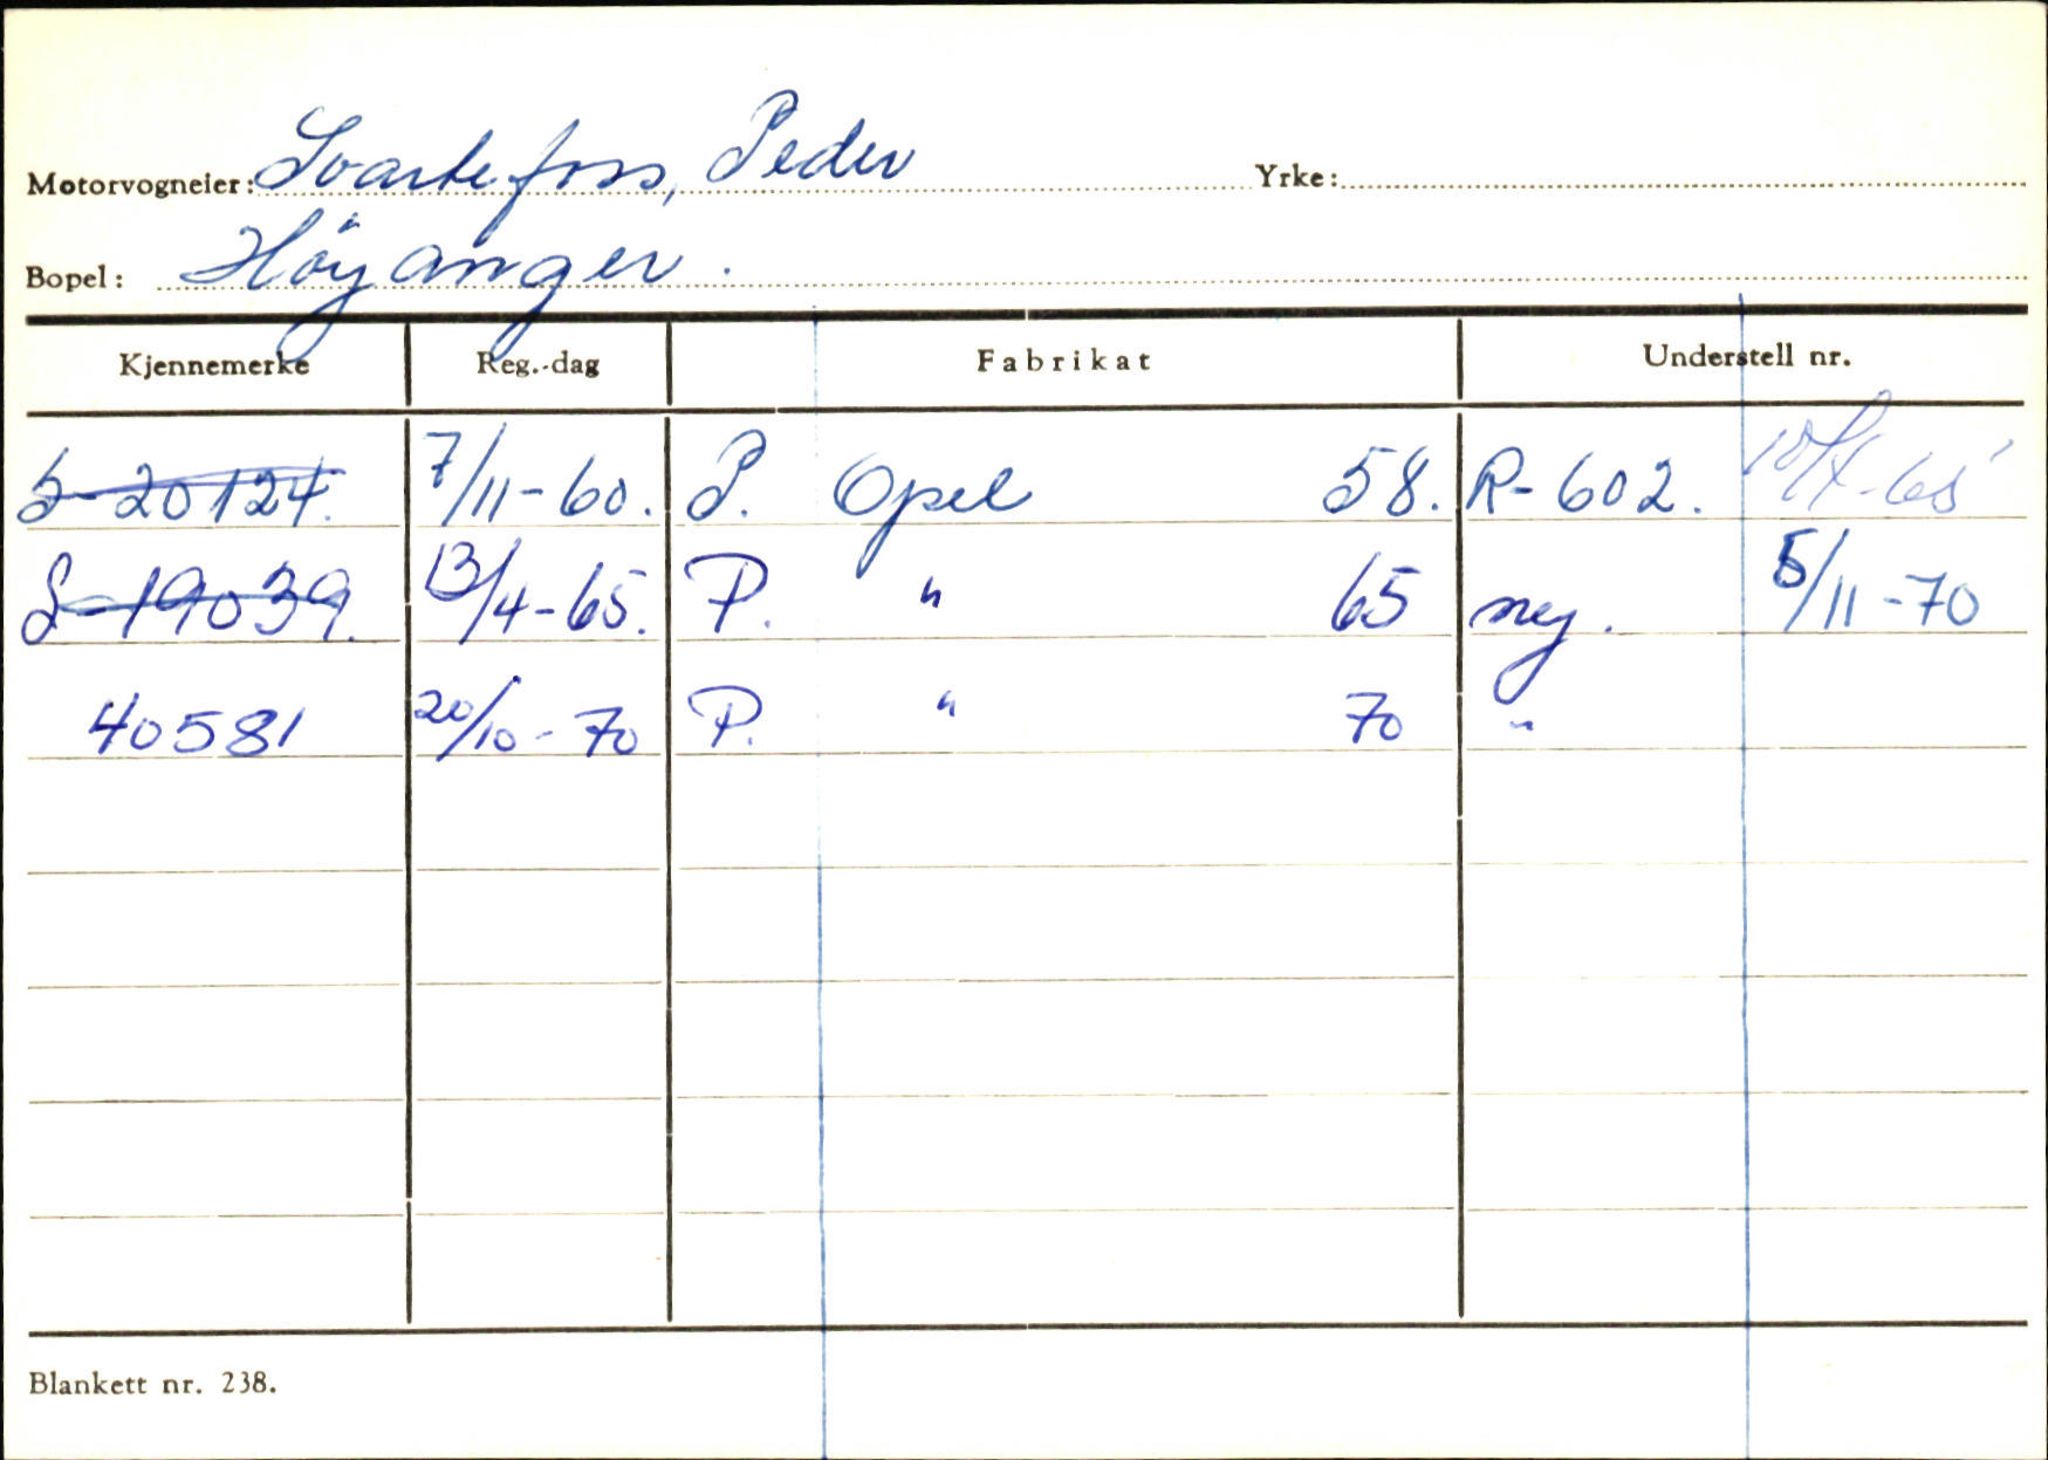 Motorvogneier: Svartefoss, Peder Yrke:
Bopel: Höyanger.
Kjennemerke Reg.-dag Fabrikat Understell nr.
S-20124. 7/11-60. P. Opel 58. R-602. 10/4-65
S-19039. 13/4-65. P. " 65 ny. 5/11-70
40581 20/10-70 P. " 70 "
Blankett nr. 238.